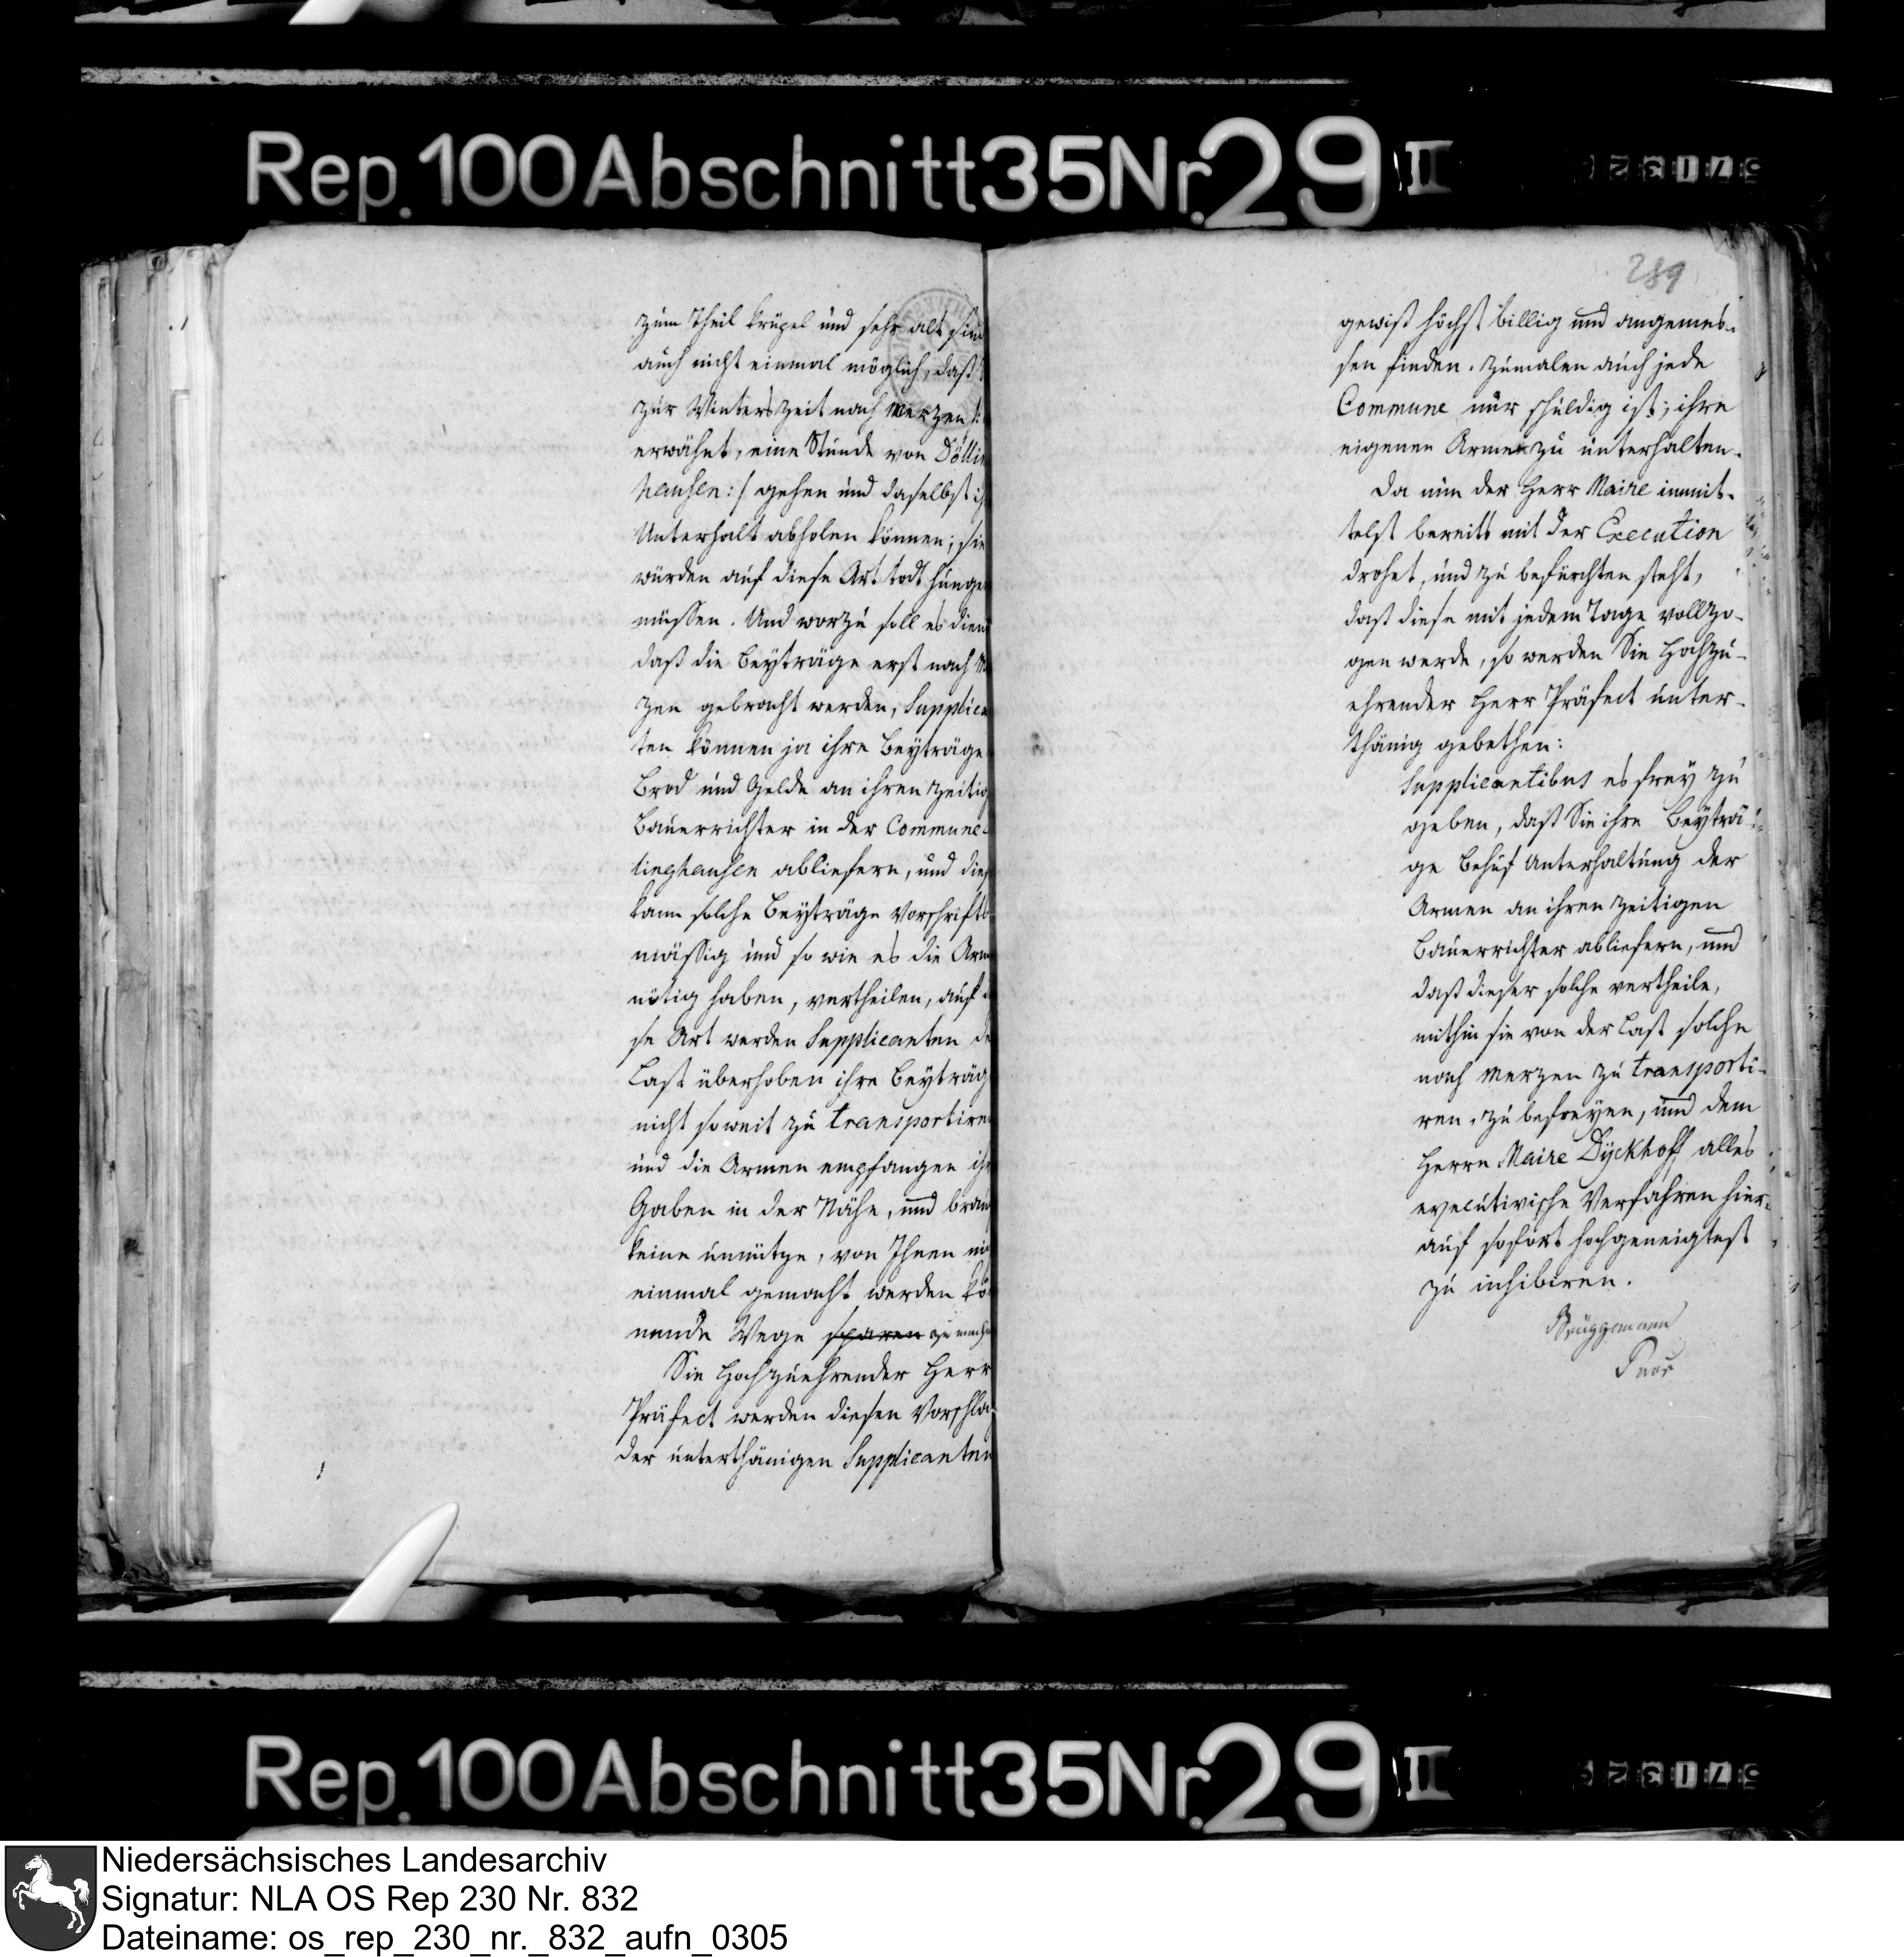 Rep. 100 Abschnitt 35 Nr. 29 II
zum Theil krüpel und sehr alt sind
auch nicht einmal möglich, daß
zur Winterszeit nach Merzen /:
erwähnt, eine Stunde von Dölli
hausen :/ gehen und daselbst ih
Unterhalt abholen können; sie
würden auf diese Art todt hunge
müssen. Und worzu soll es dien
daß die Beyträge erst nach M
zen gebracht werden, Supplica
ten können ja ihre Beyträge
Brod und Gelde an ihren zeitig
Bauerrichter in der Commune
linghausen abliefern, und dies
kann solche Beyträge vorschrifts
mässig und so wie es die Arm
nötig haben, vertheilen, auf d
se Art werden Supplicanten de
Last überhoben ihre Beyträg
nicht soweit zu transportiren
und die Armen empfangen ihr
Gaben in der Nähe, und brau
keine unnütze, von Ihnen nic
einmal gemacht werden kö
nende Wege sparen zu mache
Sie Hochzuehrender Herr
Präfect werden diesen Vorschlag
der unterthänigen Supplicanten
289
gewiß höchst billig und angemes-
sen finden. zumalen auch jede
Commune nur schuldig ist, ihre
eigenen Armen zu unterhalten.
Da nun der Herr Maire inmit-
telst bereits mit der Execution
drohet, und zu befürchten steht,
daß diese mit jedem Tage vollzo-
gen werde, so werden Sie Hochzu-
ehrender Herr Präfect unter-
thänig gebethen:
Supplicantibus es frey zu
geben, daß Sie ihre Beyträ-
ge Behuf Unterhaltung der
Armen an ihren zeitigen
Bauerrichter abliefern, und
daß dieser solche vertheile,
mithin sie von der Last solche
nach Merzen zu transporti-
ren, zu befreyen, und dem
Herrn Maire Dyckhoff alles
executivische Verfahren hier-
auf sofort hochgeneigtest
zu inhibiren.
Brüggemann
Rep. 100 Abschnitt 35 Nr. 29 II
Niedersächsisches Landesarchiv
Signatur: NLA OS Rep 230 Nr. 832
Dateiname: os_rep_230_nr._832_aufn_0305